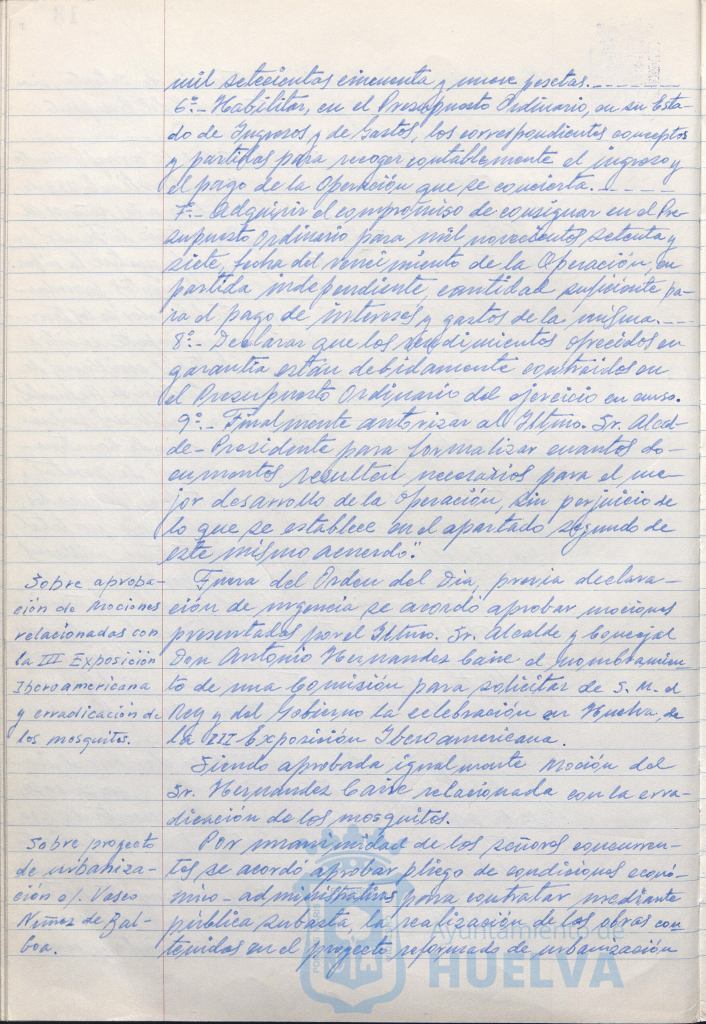 mil setecientas cincuenta y nueve pesetas.
6º.- Habilitar, en el Presupuesto Ordinario, en su Esta-
do de Ingresos y de Gastos, los correspondientes conceptos
y partidas para recoger contablemente el ingreso y
el pago de la Operación que se concierta.
7º.- Adquirir el compromiso de consignar en el Pre-
supuesto Ordinario para mil novecientos setenta y
siete, fecha del vencimiento de la Operación, en
partida independiente, cantidad suficiente pa-
ra el pago de intereses y gastos de la misma.
8º.- Declarar que los rendimientos ofrecidos en
garantía están debidamente contraidos en
el Presupuesto Ordinario del ejercicio en curso.
9º.- Finalmente autorizar al Iltmo. Sr. Alcal-
de-Presidente para formalizar cuantos do-
cumentos resulten necesarios para el me-
jor desarrollo de la Operación, sin perjuicio de
lo que se establece en el apartado segundo de
este mismo acuerdo".
Sobre aproba-
ción de mociones
relacionadas con
la III Exposición
Iberoamericana
y erradicación de
los mosquitos.
Fuera del Orden del Dia, previa declara-
ción de urgencia se acordó aprobar mociones
presentadas por el Iltmo. Sr. Alcalde y Concejal
Don Antonio Hernandez Caire el nombramien
to de una Comisión para solicitar de S. M. el
Rey y del Gobierno la celebración en Huelva, de
la III Exposición Iberoamericana.
Siendo aprobada igualmente Moción del
Sr. Hernández Caire relacionada con la erra-
dicación de los mosquitos.
Sobre proyecto
de urbaniza-
ción c/. Vasco
Nuñez de Bal-
boa.
Por unanimidad de los señores concurren-
tes se acordó aprobar pliego de condiciones econó-
mico-administrativas para contratar mediante
pública subasta, la realización de las obras con
tenidas en el proyecto reformado de urbanización
Ayuntamiento de
HUELVA